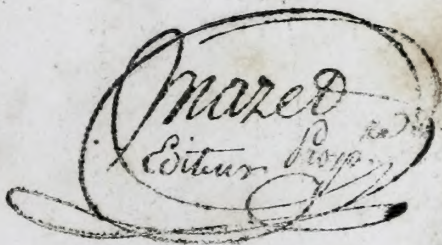 Mazet
Editeur Prop.re